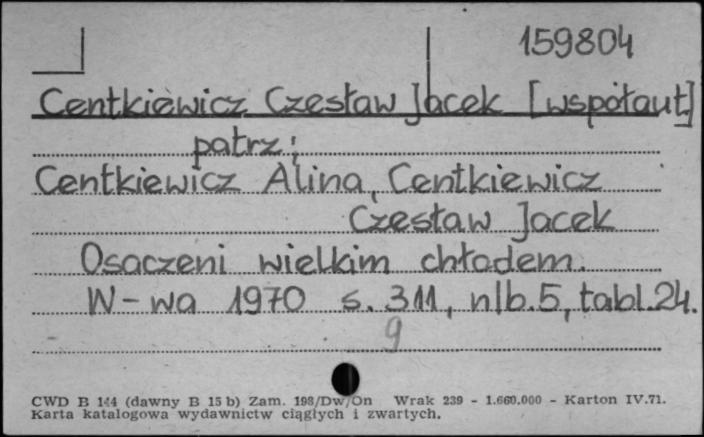 159804
Centkiewicz Czesław Jacek [współaut]
patrz:
Centkiewicz Alina, Centkiewicz
Czesław Jacek
Osaczeni wielkim chłodem.
W-wa 1970 s. 311, nlb. 5, tabl. 24.
9
CWD B 144 (dawny B 15 b) Zam. 198/Dw/On Wrak 239 - 1.660.000 - Karton IV.71.
Karta katalogowa wydawnictw ciągłych i zwartych.